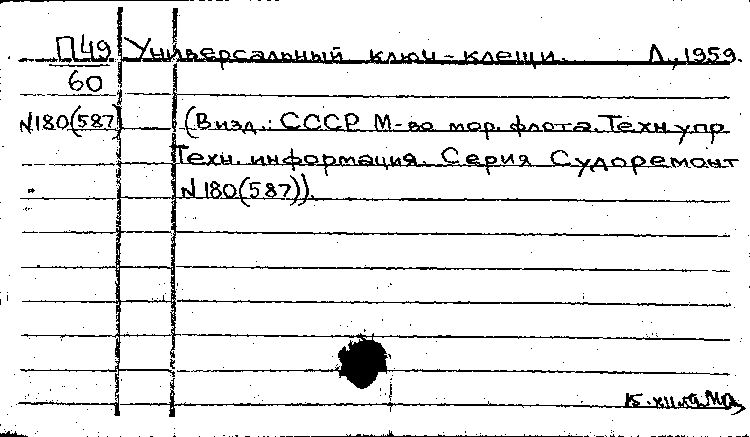 П49 Универсальный ключ-клещи. Л., 1959.
60
N180(587) (В изд.: СССР М-во мор. флота. Техн. упр
Техн. информация. Серия Судоремонт
N180(587)).